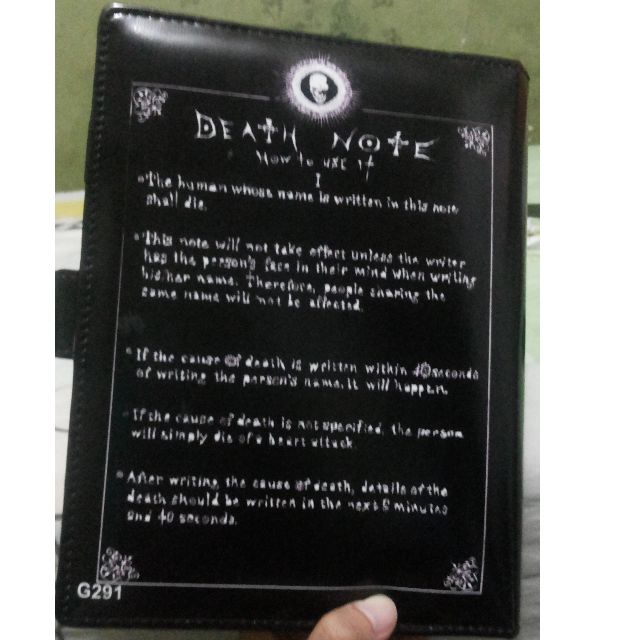 DEATH NOTE
How to use it
I
The human whose name is written in this note
shall die.
This note will not take effect unless the writer
has the person's face in their mind when writing
his/her name. Therefore, people sharing the
same name will not be affected.
If the cause of death is written within 40 seconds
of writing the person's name, it will happen.
If the cause of death is not specified, the person
will simply die of a heart attack.
After writing the cause of death, details of the
death should be written in the next 6 minutes
and 40 seconds.
G291